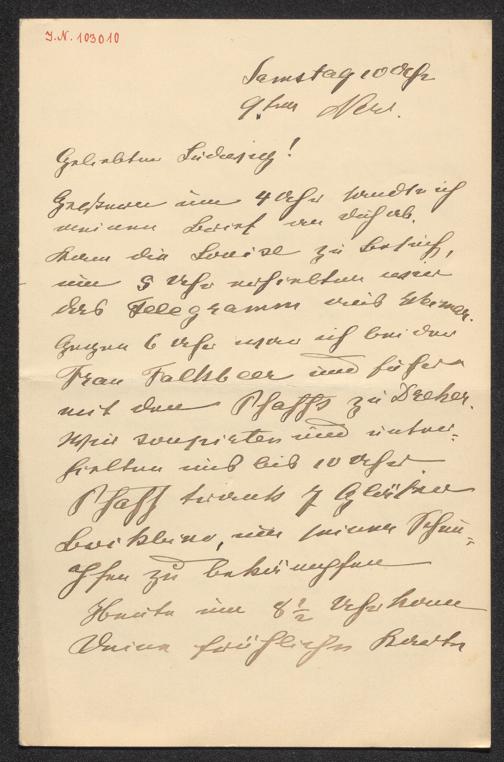 J.N. 103010
Samstag 10 Uhr
9ten Nov.
Geliebter Ludwig!
Gestern um 4 Uhr sandte ich
meinen Brief an dich ab.
kam die Louise zu Besuch,
um 5 Uhr erhielten wir
das Telegramm aus Weimar.
Gegen 6 Uhr war ich bei der
Frau Falkbeer und fuhr
mit den Pfaffs zu Dreher.
Wir soupirten und unter-
hielten uns bis 10 Uhr.
Pfaff trank 7 Gläser
Bockbier, um seinen Schnu-
pfen zu bekämpfen
Heute um 8 1/2 Uhr kam
Deine fröhliche Karte